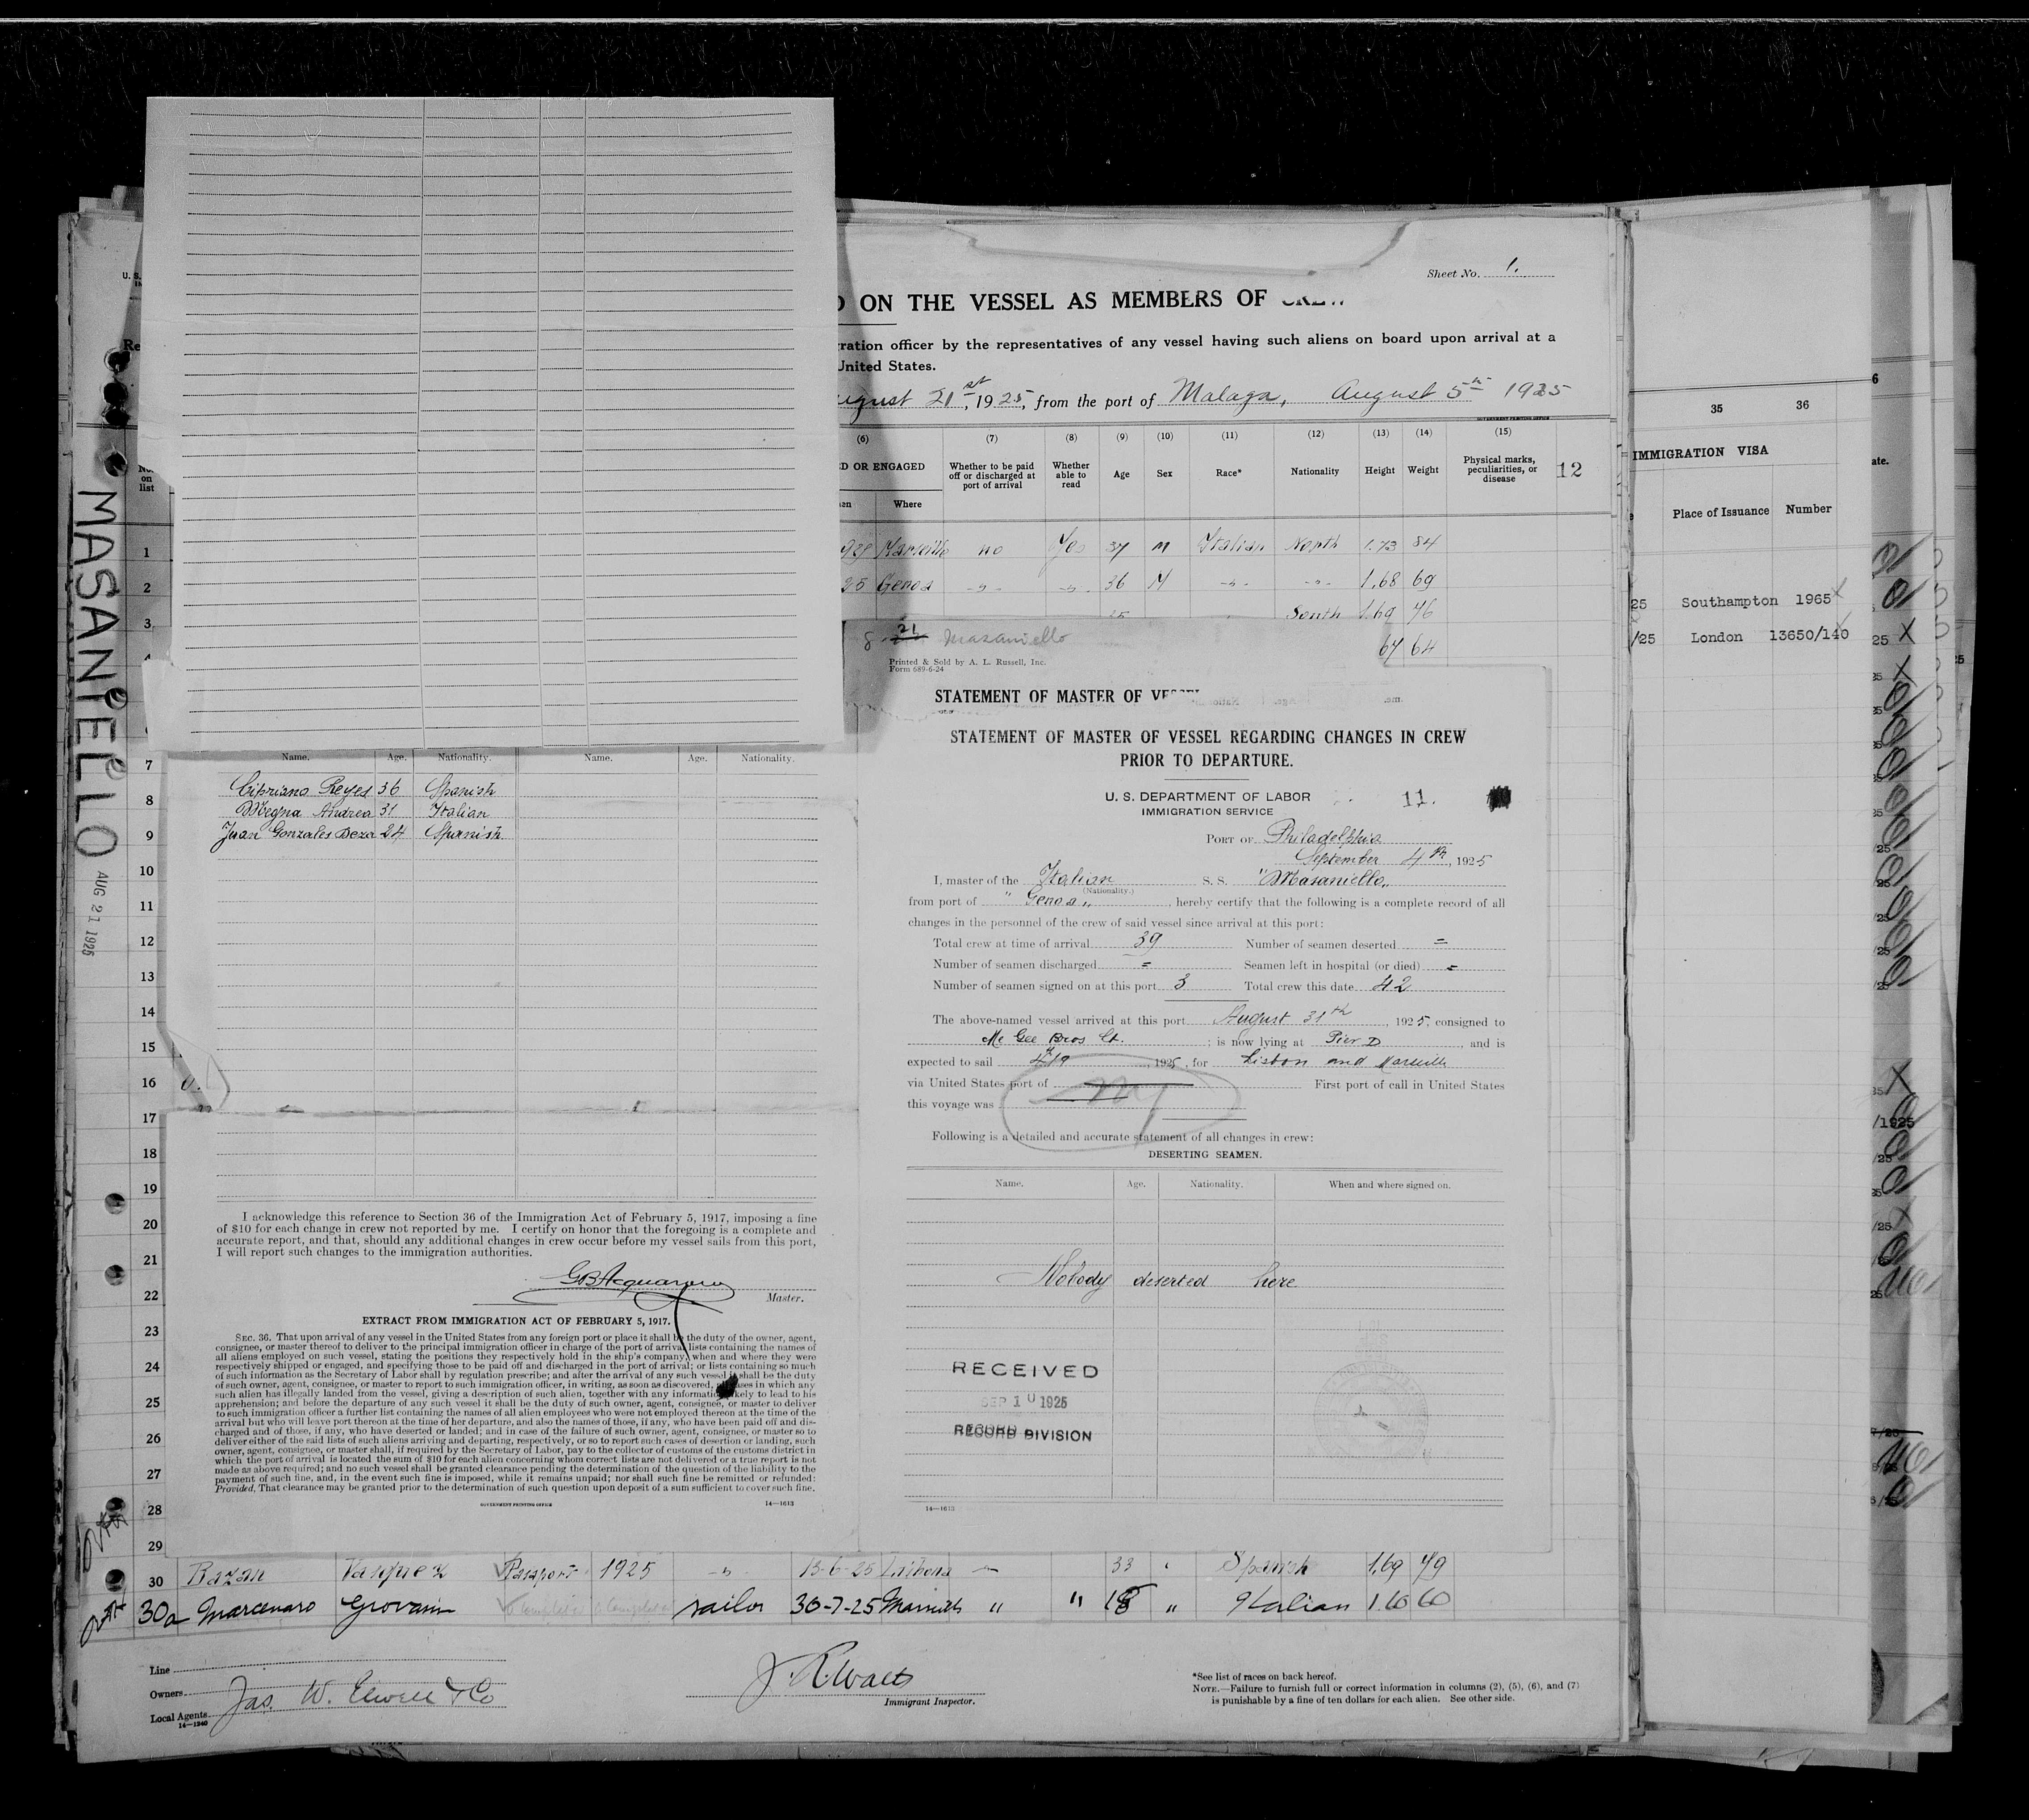 Sheet No. 1.
ON THE VESSEL AS MEMBERS OF CREW
ration officer by the representatives of any vessel having such aliens on board upon arrival at a
United States.
ugust 21st, 1925, from the port of Malaga, August 5th 1925
GOVERNMENT PRINTING OFFICE
(6) (7) (8) (9) (10) (11) (12) (13) (14) (15)
D OR ENGAGED Whether to be paid off or discharged at port of arrival Whether able to read Age Sex Race* Nationality Height Weight Physical marks, peculiarities, or disease 12
Where
No. on list
1 Marseille no Yes 37 M Italian North 1.73 84
2 25 Genoa 36 M 1.68 69
3 South 1.69 76
67 64
8 21 Masaniello
Printed & Sold by A. L. Russell, Inc.
Form 689-6-24
MASANIELLO AUG 21 1925
35 36
IMMIGRATION VISA
Place of Issuance Number
25 Southampton 1965
/25 London 13650/140
Name. Age. Nationality. Name. Age. Nationality.
Cipriano Reyes 36 Spanish
Megna Andrea 31 Italian
Juan Gonzales Deza 24 Spanish
7
8
9
10
11
12
13
14
15
16
17
18
19
20
21
22
23
24
25
26
27
28
29
I acknowledge this reference to Section 36 of the Immigration Act of February 5, 1917, imposing a fine
of $10 for each change in crew not reported by me. I certify on honor that the foregoing is a complete and
accurate report, and that, should any additional changes in crew occur before my vessel sails from this port,
I will report such changes to the immigration authorities.
Master.
EXTRACT FROM IMMIGRATION ACT OF FEBRUARY 5, 1917.
SEC. 36. That upon arrival of any vessel in the United States from any foreign port or place it shall be the duty of the owner, agent,
consignee, or master thereof to deliver to the principal immigration officer in charge of the port of arrival lists containing the names of
all aliens employed on such vessel, stating the positions they respectively hold in the ship's company, when and where they were
respectively shipped or engaged, and specifying those to be paid off and discharged in the port of arrival; or lists containing so much
of such information as the Secretary of Labor shall by regulation prescribe; and after the arrival of any such vessel it shall be the duty
of such owner, agent, consignee, or master to report to such immigration officer, in writing, as soon as discovered, all cases in which any
such alien has illegally landed from the vessel, giving a description of such alien, together with any information likely to lead to his
apprehension; and before the departure of any such vessel it shall be the duty of such owner, agent, consignee, or master to deliver
to such immigration officer a further list containing the names of all alien employees who were not employed thereon at the time of the
arrival but who will leave port thereon at the time of her departure, and also the names of those, if any, who have been paid off and dis-
charged and of those, if any, who have deserted or landed; and in case of the failure of such owner, agent, consignee, or master so to
deliver either of the said lists of such aliens arriving and departing, respectively, or so to report such cases of desertion or landing, such
owner, agent, consignee, or master shall, if required by the Secretary of Labor, pay to the collector of customs of the customs district in
which the port of arrival is located the sum of $10 for each alien concerning whom correct lists are not delivered or a true report is not
made as above required; and no such vessel shall be granted clearance pending the determination of the question of the liability to the
payment of such fine, and, in the event such fine is imposed, while it remains unpaid; nor shall such fine be remitted or refunded:
Provided, That clearance may be granted prior to the determination of such question upon deposit of a sum sufficient to cover such fine.
GOVERNMENT PRINTING OFFICE 14—1613
STATEMENT OF MASTER OF VESSEL
STATEMENT OF MASTER OF VESSEL REGARDING CHANGES IN CREW
PRIOR TO DEPARTURE.
U. S. DEPARTMENT OF LABOR 11.
IMMIGRATION SERVICE
PORT OF Philadelphia
September 4th, 1925
I, master of the Italian S. S. "Masaniello"
(Nationality.)
from port of "Genoa", hereby certify that the following is a complete record of all
changes in the personnel of the crew of said vessel since arrival at this port:
Total crew at time of arrival 39 Number of seamen deserted =
Number of seamen discharged = Seamen left in hospital (or died) =
Number of seamen signed on at this port 3 Total crew this date 42
The above-named vessel arrived at this port August 31th, 1925, consigned to
Mc Gee Bros Ct. ; is now lying at Pier D, and is
expected to sail 4/9, 1925, for Lisbon and Marseille
via United States port of First port of call in United States
this voyage was
Following is a detailed and accurate statement of all changes in crew:
DESERTING SEAMEN.
Name. Age. Nationality. When and where signed on.
Nobody deserted here
RECEIVED
SEP 10 1925
RECORD DIVISION
14—1613
30 Bazan Vasquez Passport 1925 13-6-25 Lisbona 33 Spanish 1.69 79
30a Marcenaro Giovanni sailor 30-7-25 Marseille " " 18 " Italian 1.60 60
Line
Owners
Local Agents Jas. W. Elwell & Co
14—1240
J. R. Walts
Immigrant Inspector.
*See list of races on back hereof.
NOTE.—Failure to furnish full or correct information in columns (2), (5), (6), and (7)
is punishable by a fine of ten dollars for each alien. See other side.